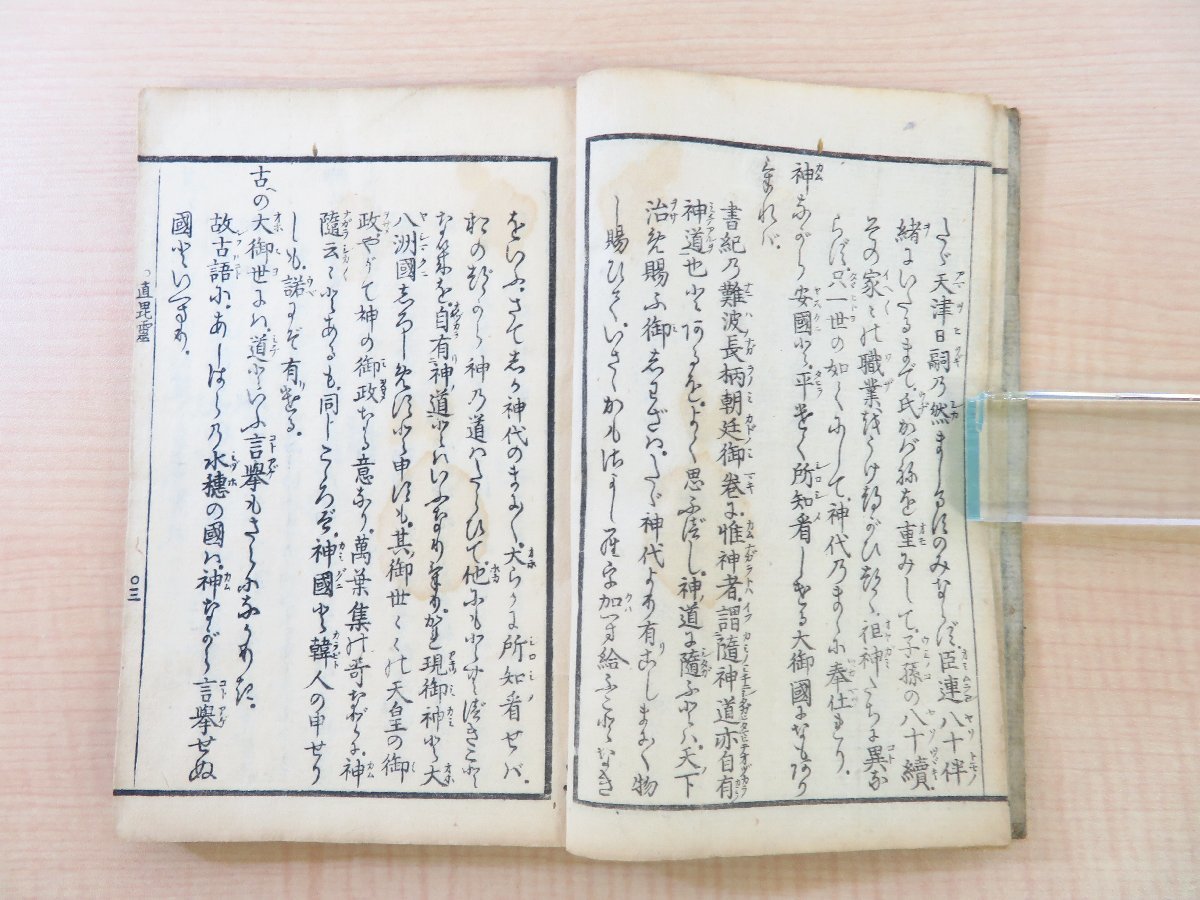 たゞ天津日嗣の然ましますのみならず、臣連八十伴
緒にいたるまで、氏かばねを重みして、子孫の八十續、
その家々の職業をうけつがひつゝ、祖神たちに異な
らず、只一世の如くにして、神代のまゝに奉仕れり。
神ながら安國と、平けく所知看しける大御國になもあり
ければ、
書紀の難波長柄朝廷御卷に、惟神者、謂隨神道亦自有
神道也とあるを、よく思ふべし、神道に隨ふとは、天下
治め賜ふ御しわざは、たゞ神代より有こしまにまに物
し賜ひて、いさゝかもさかしらを加へ給ふことなき
をいふ、さてしか神代のまにまに、大らかに所知看せば、
おのづから神の道はたらひて、他にもとむべきこと
なきを、自有神道とはいふなりけり、かれ現御神と大
八洲國しろしめすと申すも、其御世々々の天皇の御
政、やがて神の御政なる意なり、萬葉集の哥などに、神
隨云々とあるも、同じこゝろぞ、神國と韓人の申せり
しも、諾にぞ有ける。
古の大御世には、道といふ言擧もさらになかりき。
故古語に、あしはらの水穗の國は、神ながら言擧せぬ
國といへり。
直毘靈
〇三